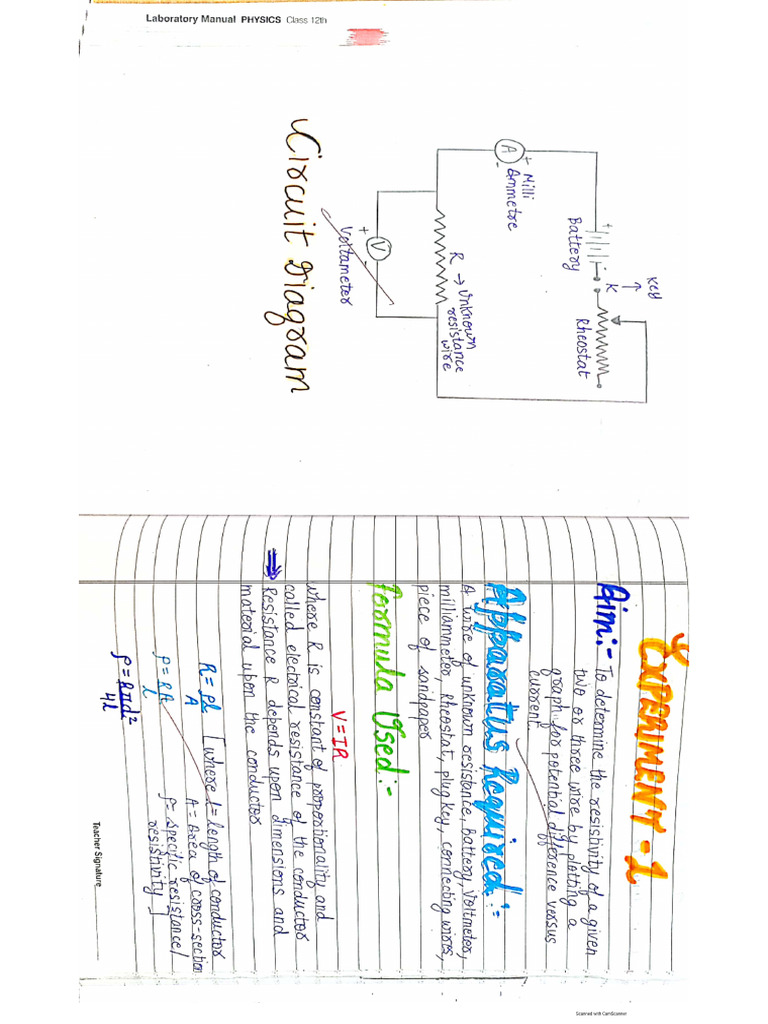 Laboratory Manual PHYSICS Class 12th
Key
K
Rheostat
+
Battery
A
+
-
Milli
Ammetre
R → Unknown
resistance
wire
V
+
Voltameter
Circuit Diagram
EXPERIMENT-1
Aim:- To determine the resistivity of a given
two or three wire by plotting a
graph for potential difference versus
current.
Apparatus Required:-
A wire of unknown resistance, battery, voltmeter,
milliammeter, Rheostat, plug key, connecting wires,
piece of sandpaper
Formula Used:-
V=IR
where R is constant of proportionality and
called electrical resistance of the conductor
→ Resistance R depends upon dimensions and
material upon the conductor
R = ρl [where l = length of conductor
A A = Area of cross-section
ρ = RA ρ = specific resistance/
l resistivity]
ρ = Rπd²
4l
Teacher Signature
Scanned with CamScanner